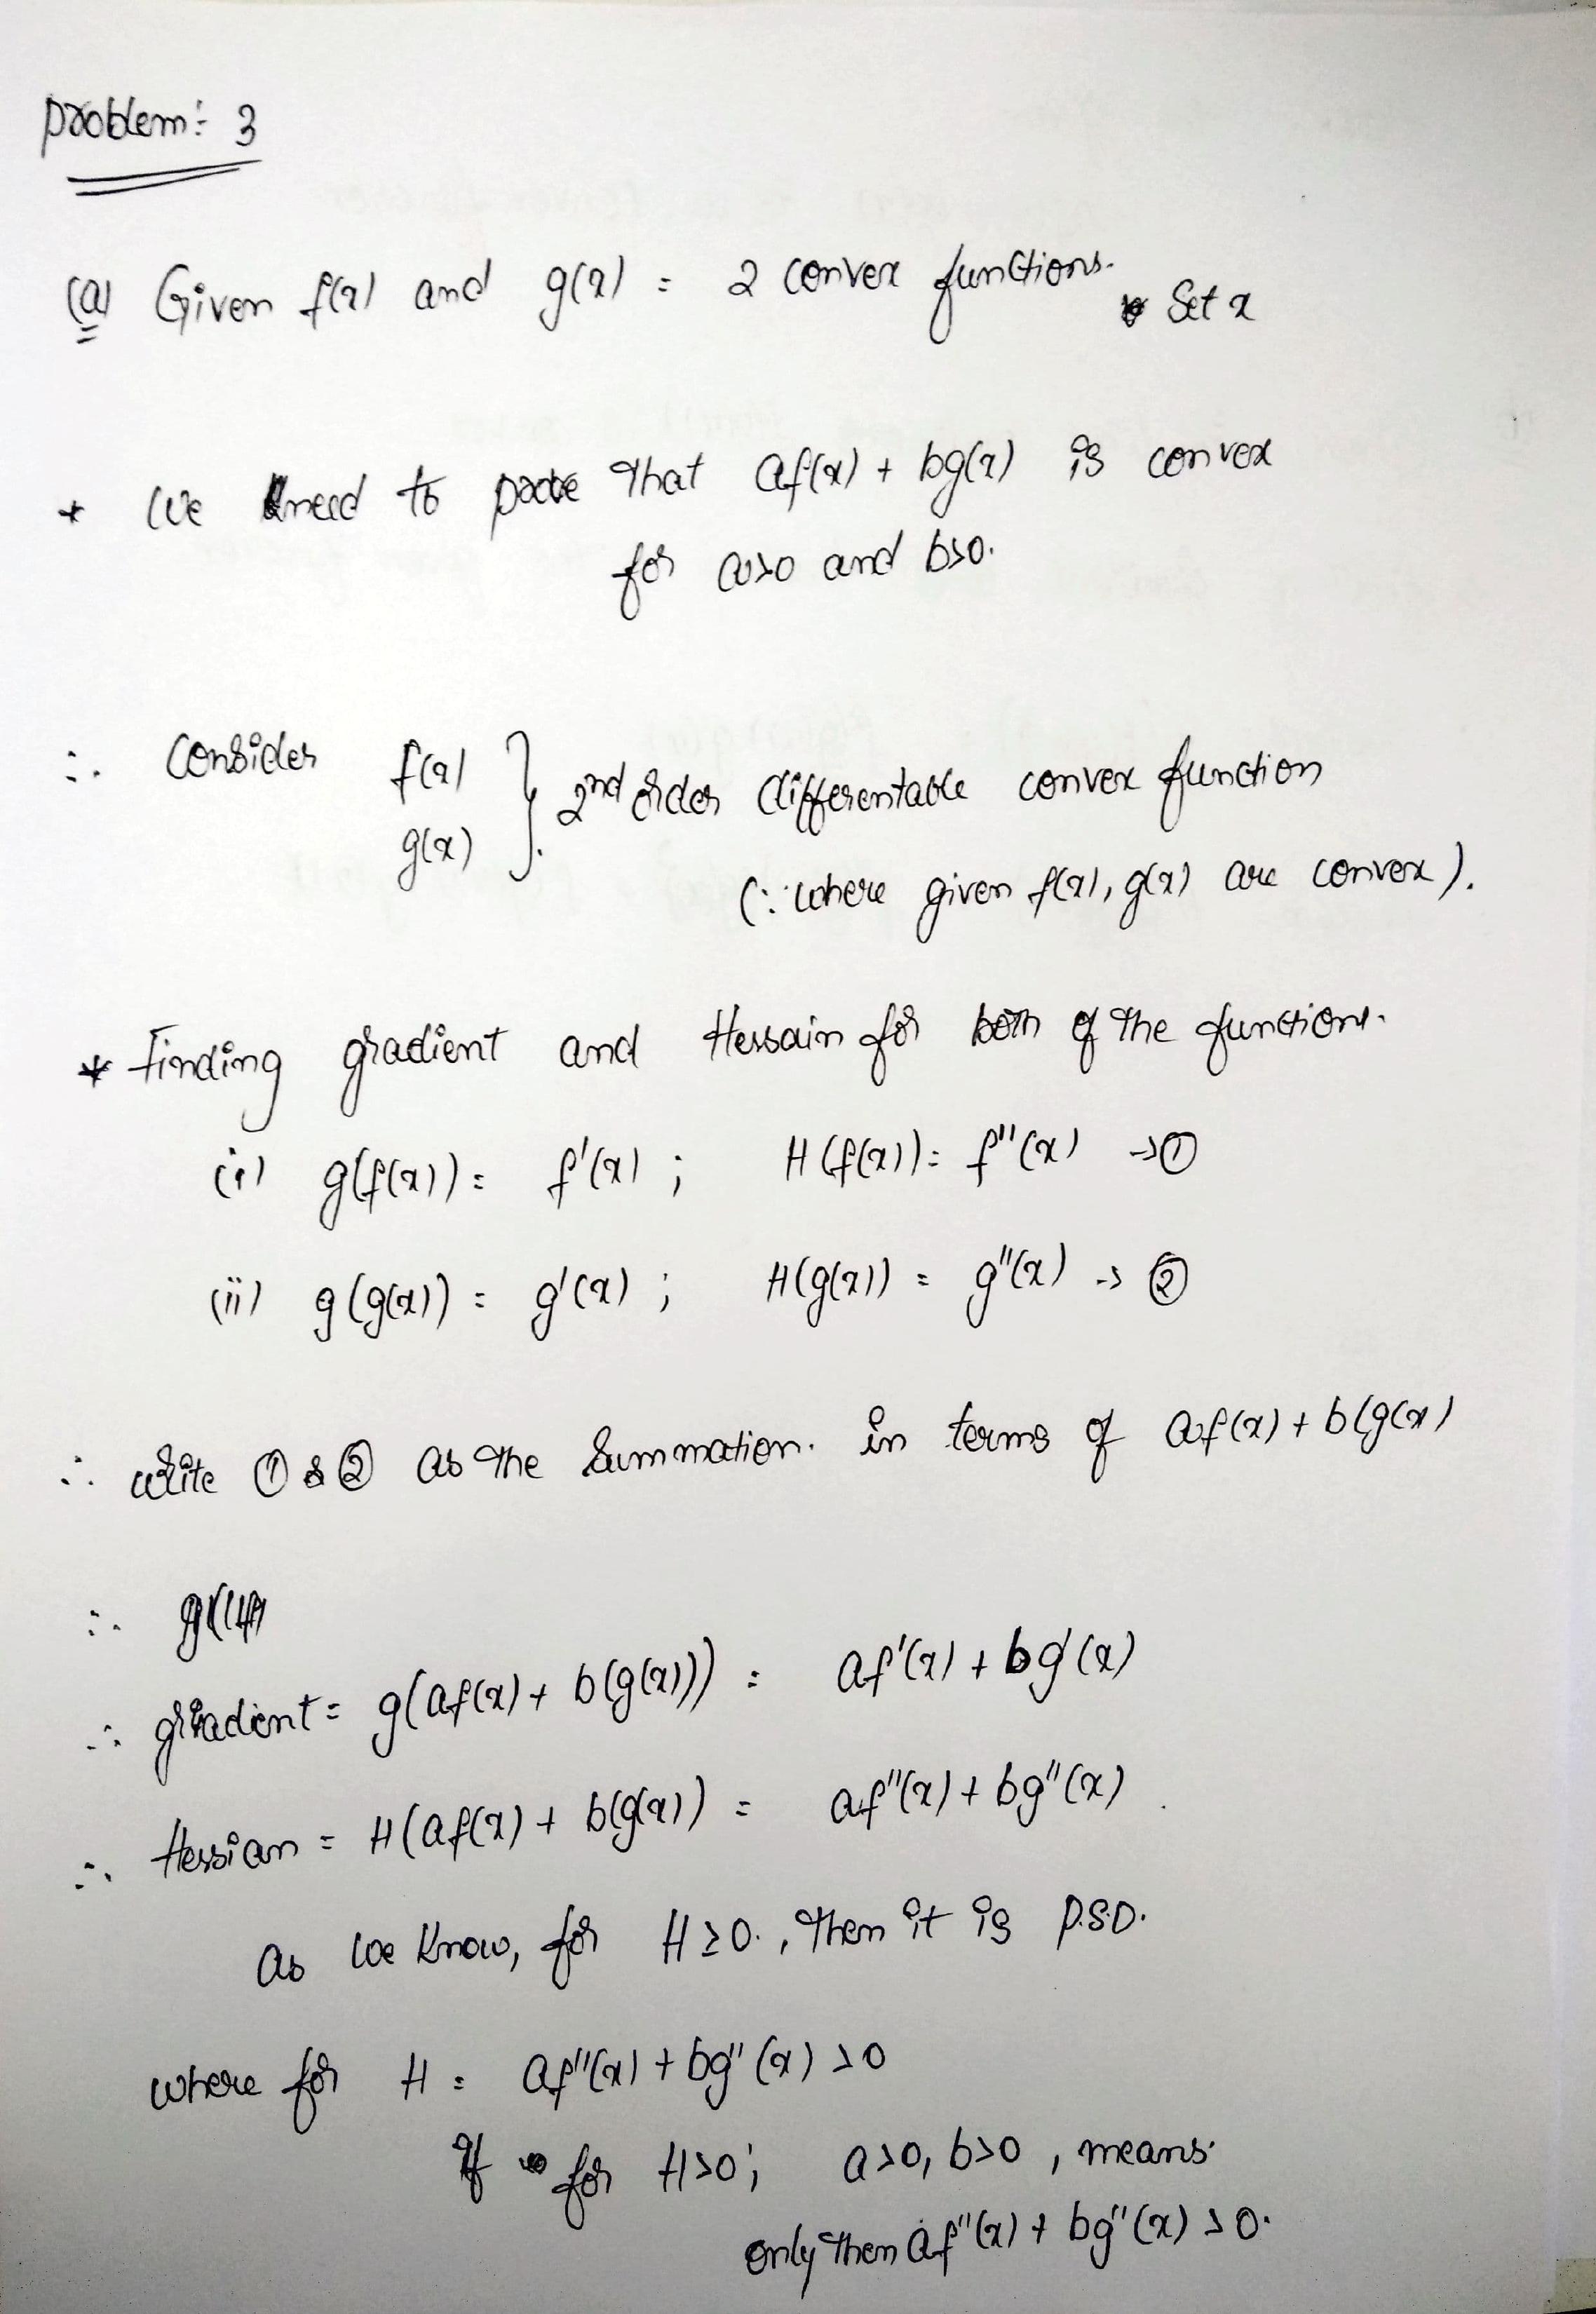 problem:- 3
(a) Given f(x) and g(x) = 2 convex functions. Set x
* We need to prove that af(x) + bg(x) is convex
for a>0 and b>0.
∴ Consider f(x)
g(x) } 2nd order differentable convex function
(∵ where given f(x), g(x) are convex).
* Finding gradient and Hessain for both of the functions.
(i) g(f(x)) = f'(x) ; H(f(x)) = f''(x) → ①
(ii) g(g(x)) = g'(x) ; H(g(x)) = g''(x) → ②
∴ write ① & ② as the summation. in terms of af(x) + b(g(x)
∴
∴ gradient = g(af(x) + b(g(x))) = af'(x) + bg'(x)
∴ Hessian = H(af(x) + b(g(x)) = af''(x) + bg''(x)
as we know, for H ≥ 0., then it is P.S.D.
where for H = af''(x) + bg''(x) > 0
If for H>0; a>0, b>0, means
only then af''(x) + bg''(x) > 0.